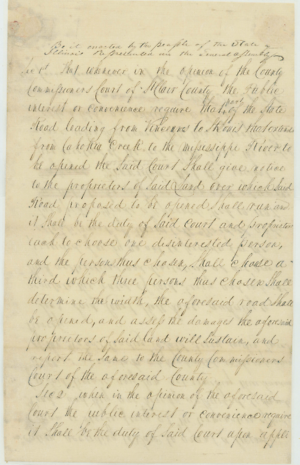 Be it enacted by the people of the State of
Illinois Represented in the General Assembly
Sec 1. That whenever in the opinion of the County
Commissioners Court of St Clair County the public
interest or convenience require that part of the State
Road leading from Vincennes to St Louis that extends
from Cahokia Creek to the mississippi River to
be opened the Said Court Shall give notice
to the proprietors of Said Land over which Said
Road proposed to be opened Shall run on
it Shall be the duty of Said Court and proprietors
each to choose one disinterested person,
and the persons thus chosen, Shall choose a
third which three persons thus chosen Shall
determine the width, the aforesaid road shall
be opened, and assess the damages the aforesaid
proprietors of Said land will Sustain, and
report the Same to the County Commissioners
Court of the aforesaid County
Sec 2 when in the opinion of the aforesaid
Court the public interest or convenience require
it Shall be the duty of Said Court upon